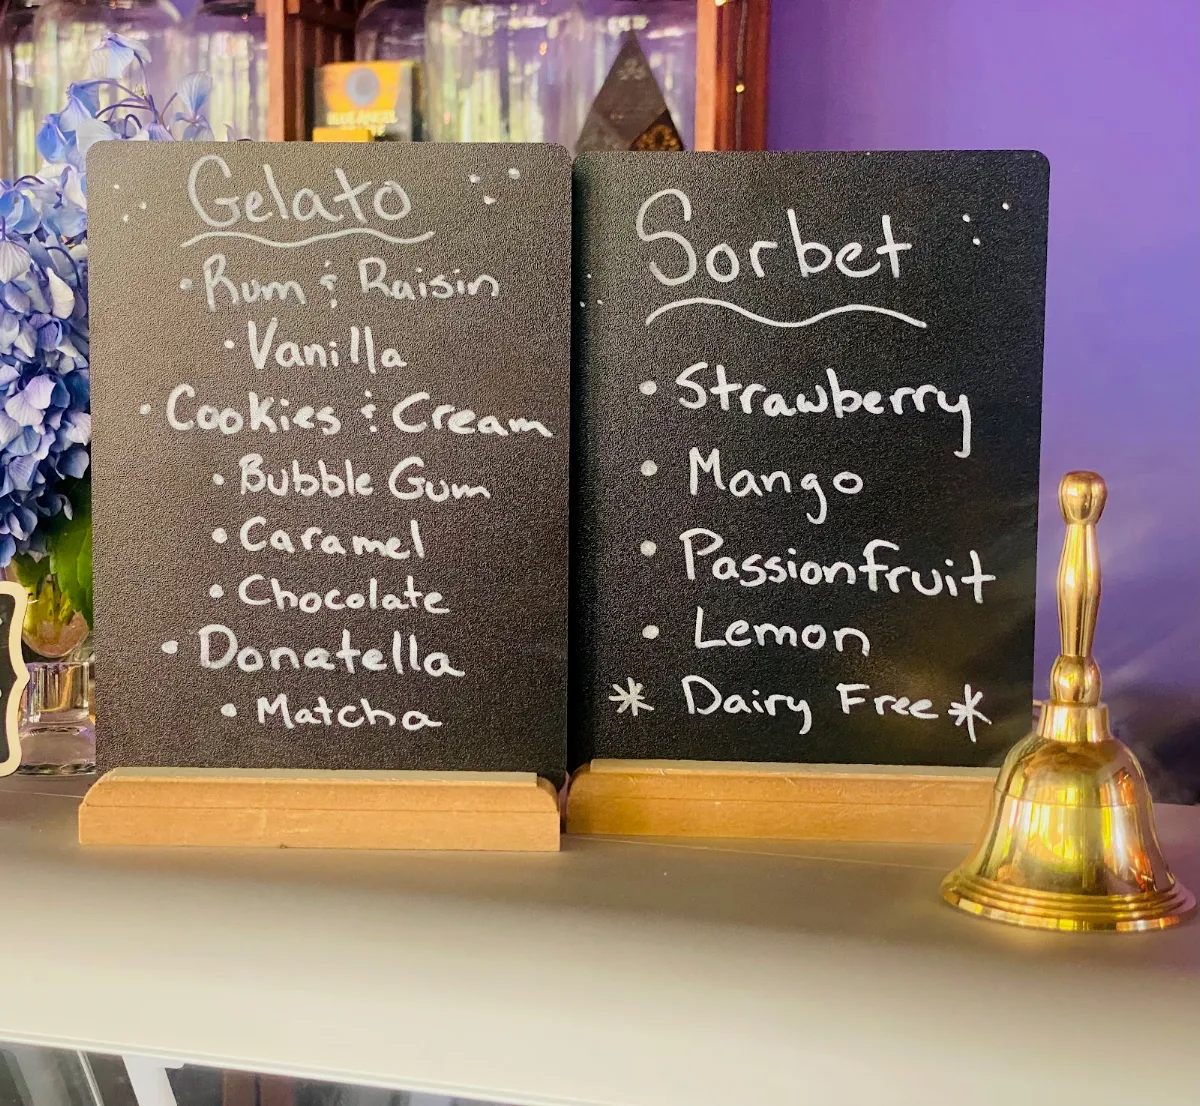 BLUE ANGEL
Gelato
• Rum & Raisin
• Vanilla
• Cookies & Cream
• Bubble Gum
• Caramel
• Chocolate
• Donatella
• Matcha
Sorbet
• Strawberry
• Mango
• Passionfruit
• Lemon
* Dairy Free *